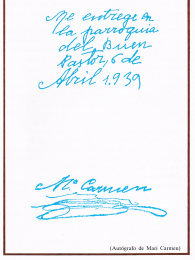 Me entregé en
la parroquia
del Buen
Pastor, 6 de
Abril 1.939
Mª Carmen
(Autógrafo de Mari Carmen)